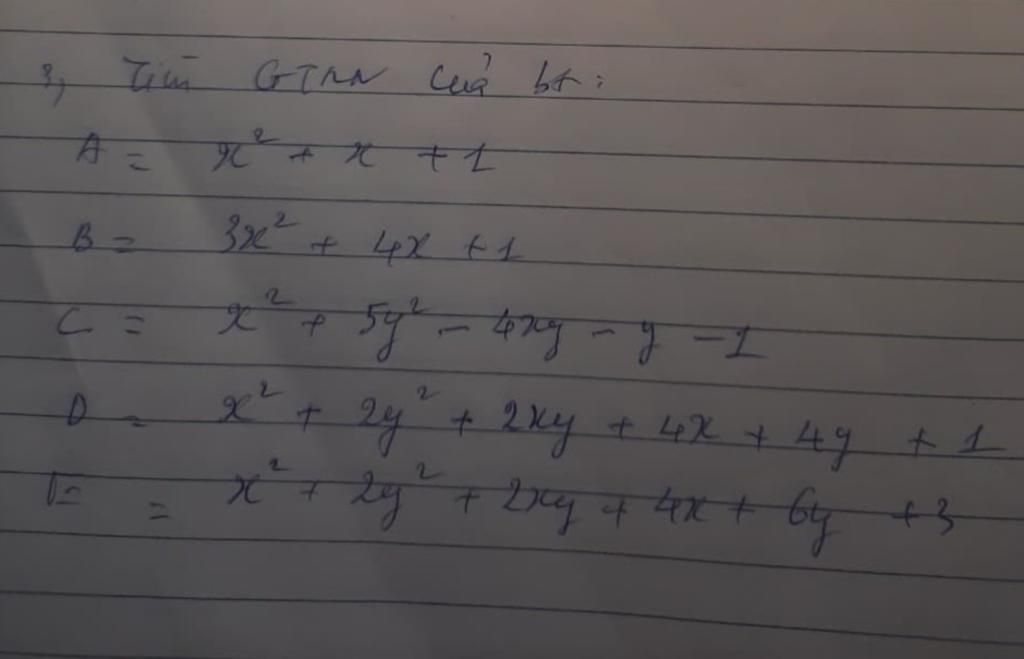 3, Tìm GTNN của bt:
A = x² + x + 1
B = 3x² + 4x + 1
C = x² + 5y² - 4xy - y - 1
D = x² + 2y² + 2xy + 4x + 4y + 1
E = x² + 2y² + 2xy + 4x + 6y + 3